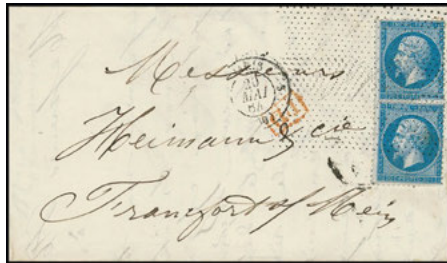 Messieurs
Heimann & cie
Francfort s/ Mein
MAI